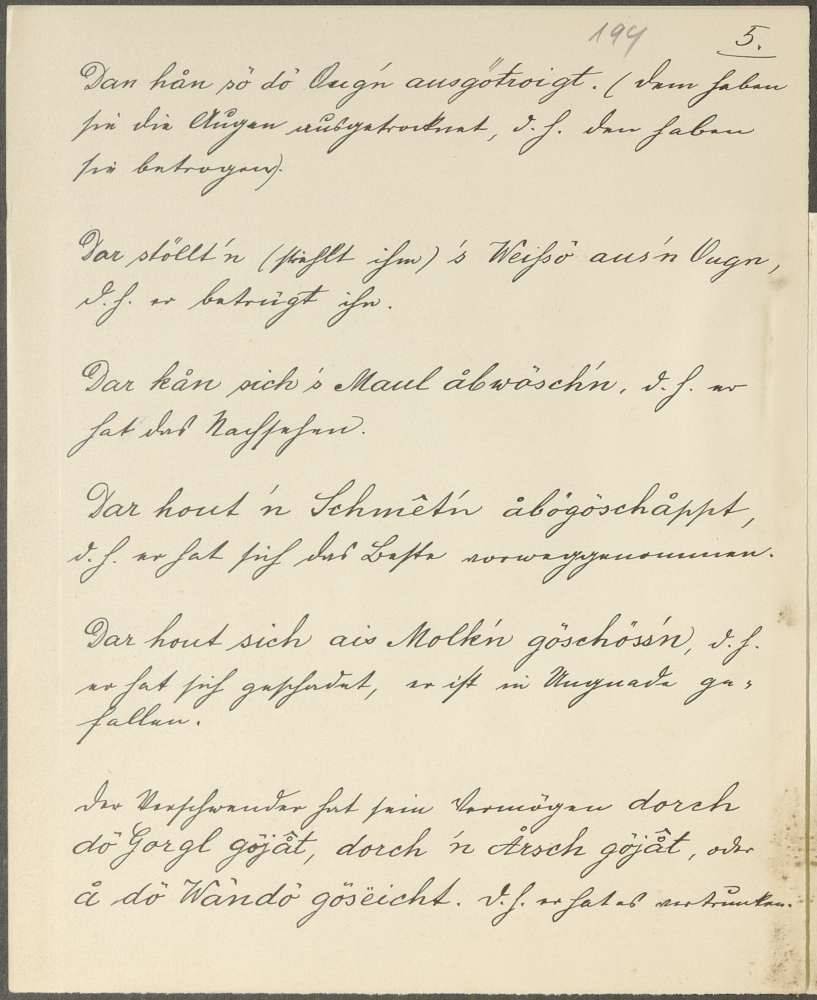 194
5.
Dan hån sö dö Ougn ausgötroigt. (dem haben
sie die Augen ausgetrocknet, d. h. den haben
sie betrogen).
Dar stöllt'n (stiehlt ihm) 's Weißö aus'n Ougn,
d. h. er betrügt ihn.
Dar kån sich's Maul åbwösch'n, d. h. er
hat das Nachsehen.
Dar hout 'n Schmêt'n åbögöschåppt,
d. h. er hat sich das Beste vorweggenommen.
Dar hout sich ais Molk'n göschöss'n, d. h.
er hat sich geschadet, er ist in Ungnade ge-
fallen.
Der Verschwender hat sein Vermögen dorch
dö Gorgl göjåt, dorch 'n Årsch göjåt, oder
å dö Wàndö gösëicht. d. h. er hat es vertrunken.